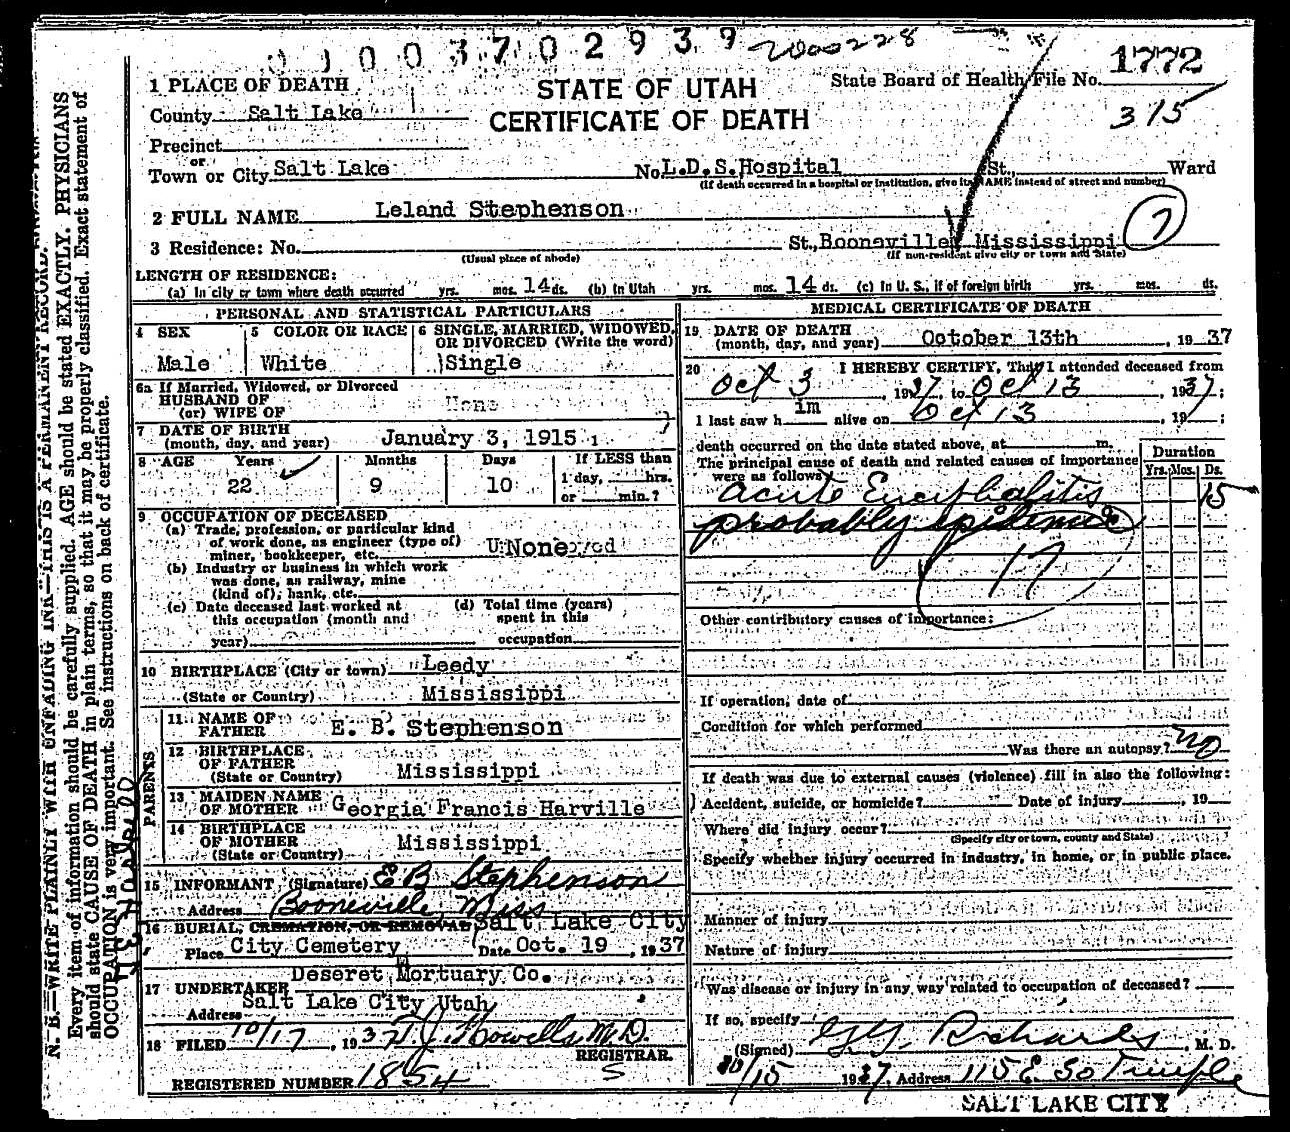 0 1 0 0 3 7 0 2 9 3 9 2000228
1772
1 PLACE OF DEATH
STATE OF UTAH
CERTIFICATE OF DEATH
State Board of Health File No.
315
County Salt Lake
Precinct
or
Town or City Salt Lake No. L.D.S. Hospital St., Ward
(If death occurred in a hospital or institution, give its NAME instead of street and number)
2 FULL NAME Leland Stephenson
3 Residence: No. St., Booneville, Mississippi 7
(Usual place of abode) (If non-resident give city or town and State)
LENGTH OF RESIDENCE:
(a) In city or town where death occurred yrs. mos. 14 ds. (b) In Utah yrs. mos. 14 ds. (c) In U. S., if of foreign birth yrs. mos. ds.
PERSONAL AND STATISTICAL PARTICULARS
4 SEX 5 COLOR OR RACE 6 SINGLE, MARRIED, WIDOWED, OR DIVORCED (Write the word)
Male White Single
6a If Married, Widowed, or Divorced
HUSBAND OF
(or) WIFE OF None
7 DATE OF BIRTH
(month, day, and year) January 3, 1915
8 AGE Years Months Days If LESS than
22 9 10 1 day, hrs.
or min.?
9 OCCUPATION OF DECEASED
(a) Trade, profession, or particular kind
of work done, as engineer (type of)
miner, bookkeeper, etc. None
(b) Industry or business in which work
was done, as railway, mine
(kind of), bank, etc.
(c) Date deceased last worked at (d) Total time (years)
this occupation (month and spent in this
year) occupation
10 BIRTHPLACE (City or town) Leedy
(State or Country) Mississippi
PARENTS
11 NAME OF
FATHER E. B. Stephenson
12 BIRTHPLACE
OF FATHER
(State or Country) Mississippi
13 MAIDEN NAME
OF MOTHER Georgia Francis Harville
14 BIRTHPLACE
OF MOTHER
(State or Country) Mississippi
15 INFORMANT (Signature) E B Stephenson
Address Booneville, Miss
16 BURIAL, CREMATION, OR REMOVAL Salt Lake City
Place City Cemetery Date Oct. 19, 1937
Deseret Mortuary Co.
17 UNDERTAKER
Address Salt Lake City Utah
18 FILED 10/17, 1937 T. J. Howells, M.D.
REGISTRAR.
REGISTERED NUMBER 1854 S
MEDICAL CERTIFICATE OF DEATH
19 DATE OF DEATH
(month, day, and year) October 13th, 1937
20 I HEREBY CERTIFY, That I attended deceased from
Oct 3, 1937, to Oct 13, 1937;
I last saw him alive on Oct 13, 197;
death occurred on the date stated above, at m.
The principal cause of death and related causes of importance
were as follows:
Duration
Yrs. Mos. Ds.
Acute Encephalitis 15
probably epidemic
17
Other contributory causes of importance:
If operation, date of
Condition for which performed
Was there an autopsy? no
If death was due to external causes (violence) fill in also the following:
Accident, suicide, or homicide? Date of injury, 19
Where did injury occur?
(Specify city or town, county and State)
Specify whether injury occurred in industry, in home, or in public place.
Manner of injury
Nature of injury
Was disease or injury in any way related to occupation of deceased?
If so, specify
(Signed) G.G. Richards, M. D.
10/15 1937, Address 115 E. So Temple
SALT LAKE CITY
N. B.—WRITE PLAINLY WITH UNFADING INK—THIS IS A PERMANENT RECORD.
Every item of information should be carefully supplied. AGE should be stated EXACTLY. PHYSICIANS
should state CAUSE OF DEATH in plain terms, so that it may be properly classified. Exact statement of
OCCUPATION is very important. See instructions on back of certificate.